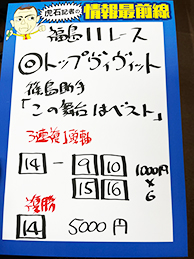 虎石記者の
情報最前線
福島11レース
◎トップヴィヴィット
篠島助手
「この舞台はベスト」
3連複1頭軸
14 - 9 10
15 16
1000円
×
6
複勝
14 5000円